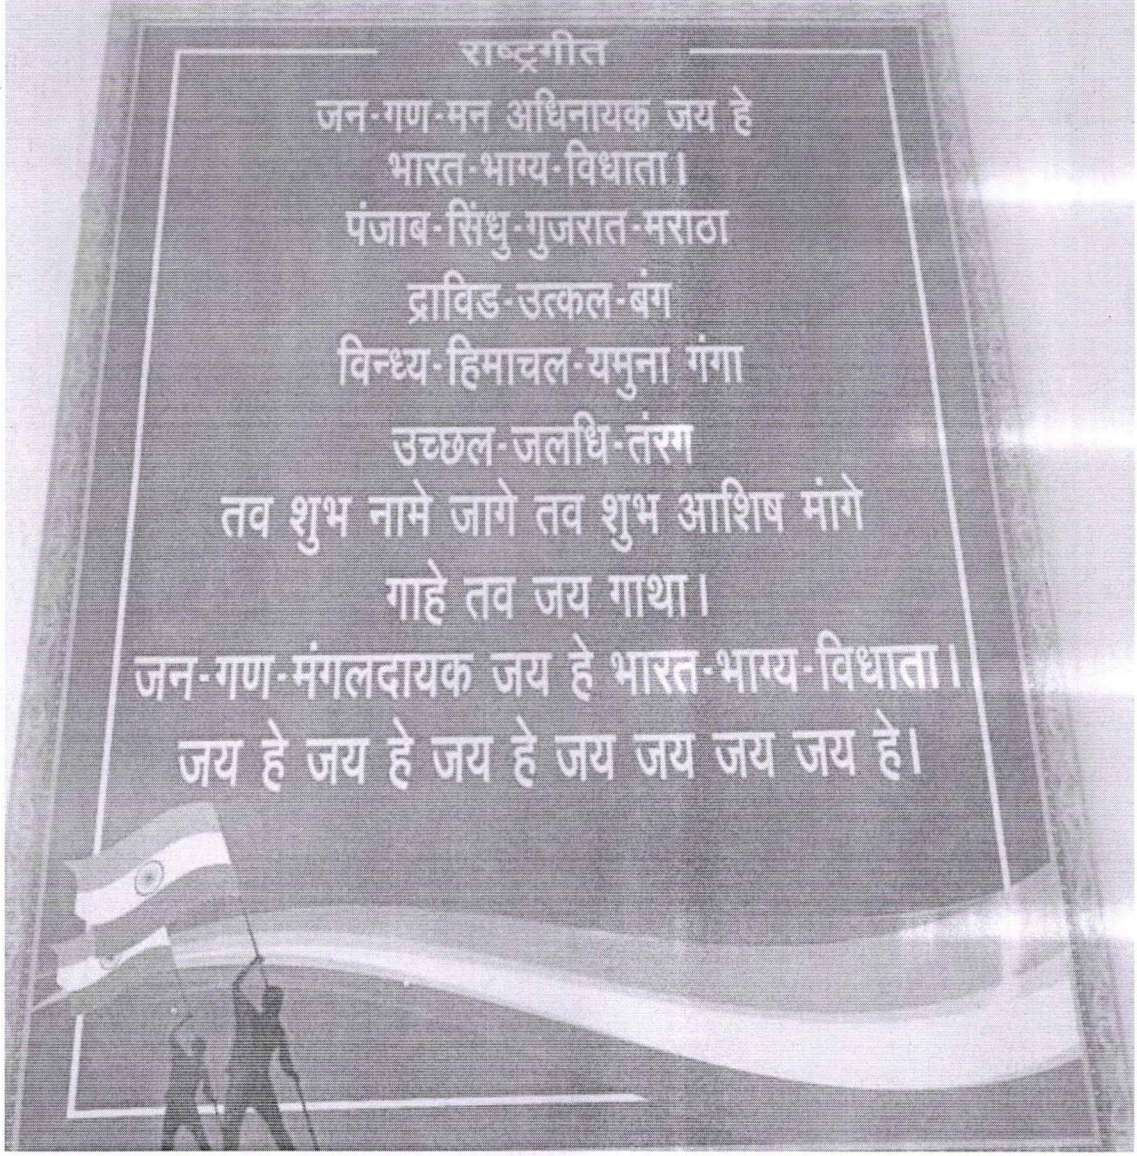 राष्ट्रगीत
जन-गण-मन अधिनायक जय हे
भारत-भाग्य-विधाता।
पंजाब-सिंधु-गुजरात-मराठा
द्राविड-उत्कल-बंग
विन्ध्य-हिमाचल-यमुना गंगा
उच्छल-जलधि-तंरग
तव शुभ नामे जागे तव शुभ आशिष मांगे
गाहे तव जय गाथा।
जन-गण-मंगलदायक जय हे भारत-भाग्य-विधाता।
जय हे जय हे जय हे जय जय जय जय हे।